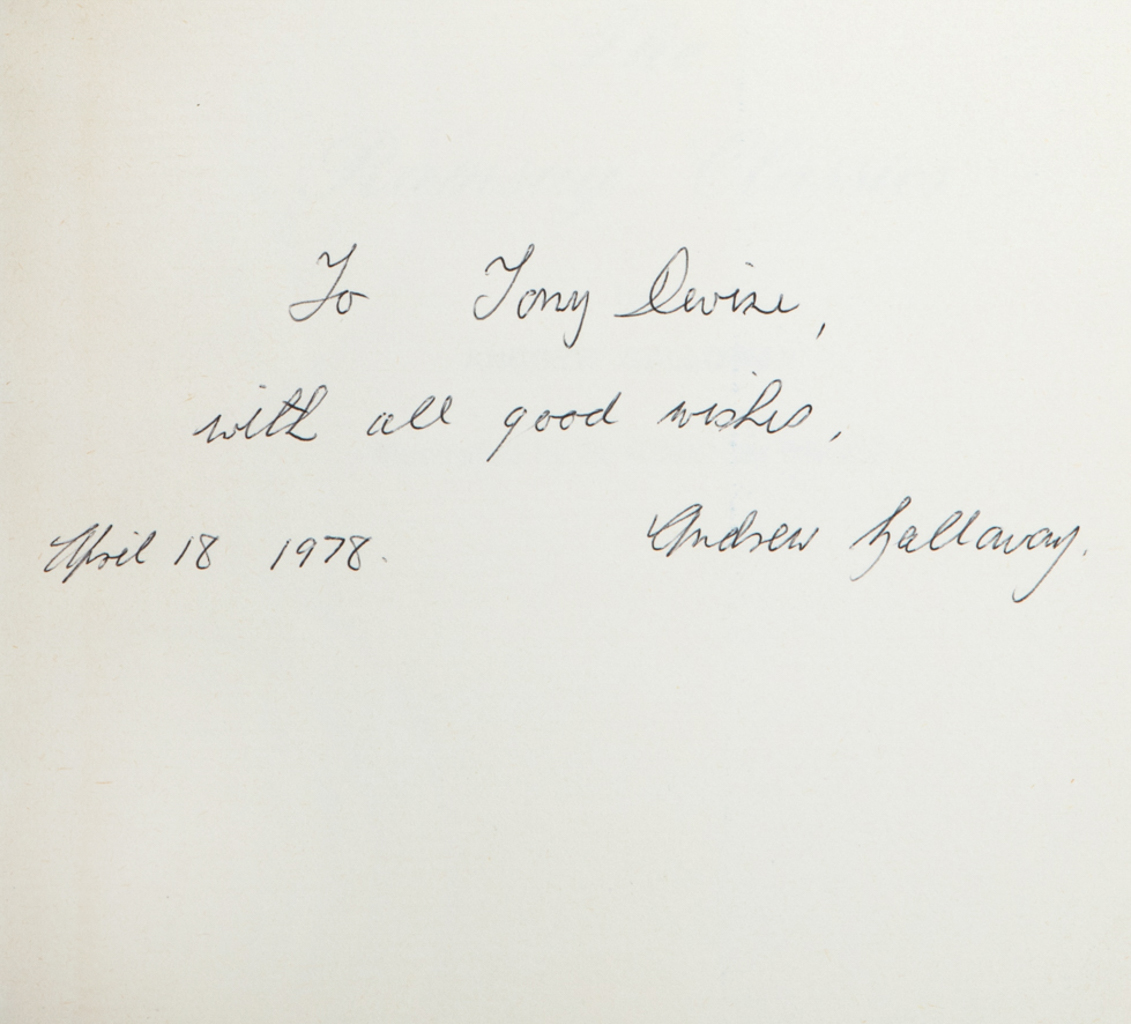 To Tony Devine,
with all good wishes,
April 18 1978. Andrew